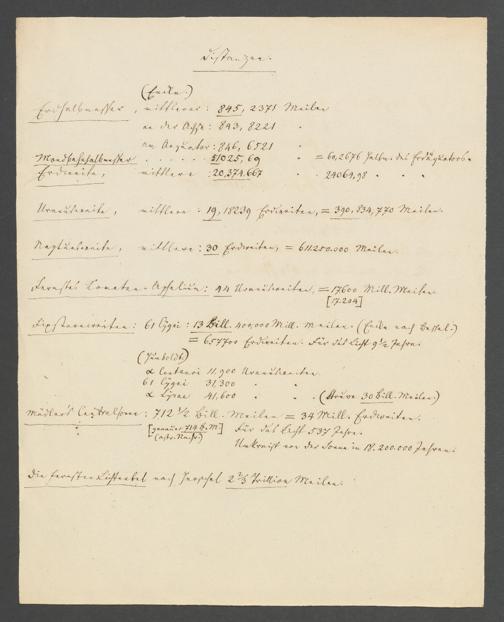 Distanzen.
(Encke.)
Erdhalbmesser, mittlerer: 845,2371 Meilen
an der Axe: 843,8221 "
am Aequator: 846,6521 "
Mondbahnhalbmesser . . . . . 51025,69 " = 60,2676 Halbm. des Erdäquators
Erdweite, mittlere: 20,374.667 " 24064,98 " " "
Uranusweite, mittlere: 19,18239 Erdweiten, = 390,834,770 Meilen.
Neptunsweite, mittlere: 30 Erdweiten, = 611250.000 Meilen.
Fernste Cometen-Aphelium: 44 Uranusweiten, = 17600 Mill. Meilen
[17.204]
Fixsternweiten: 61 Cygni: 13 Bill. 400,000 Mill. Meilen. (Encke nach Bessel.)
= 657700 Erdweiten. Für das Licht 9½ Jahre.
(Humboldt)
α Centauri 11,900 Uranusweiten
61 Cygni 31,300 " "
α Lyrae 41,600 " " (Struve 30 Bill. Meilen)
Mädler's Centralsonne: 712½ Bill. Meilen = 34 Mill. Erdweiten.
[genauer 714 B. M] Für das Licht 537 Jahre.
(astr. Nachr.)
Umkreist von der Sonne in 18.200.000 Jahren.
Die fernsten Lichtnebel nach Herschel 2⅔ Trillion Meilen.